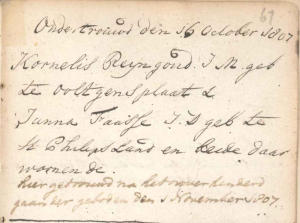 61
Ondertrouwd den 16 October 1807
Kornelis Reyngoud. J M. geb
te ooltgensplaat &
Janna Faasse J. D geb te
St Philips Land en beide daar
wonende.
hier getrouwd na het onverhinderd
gaan der geboden den 1 November 1807.